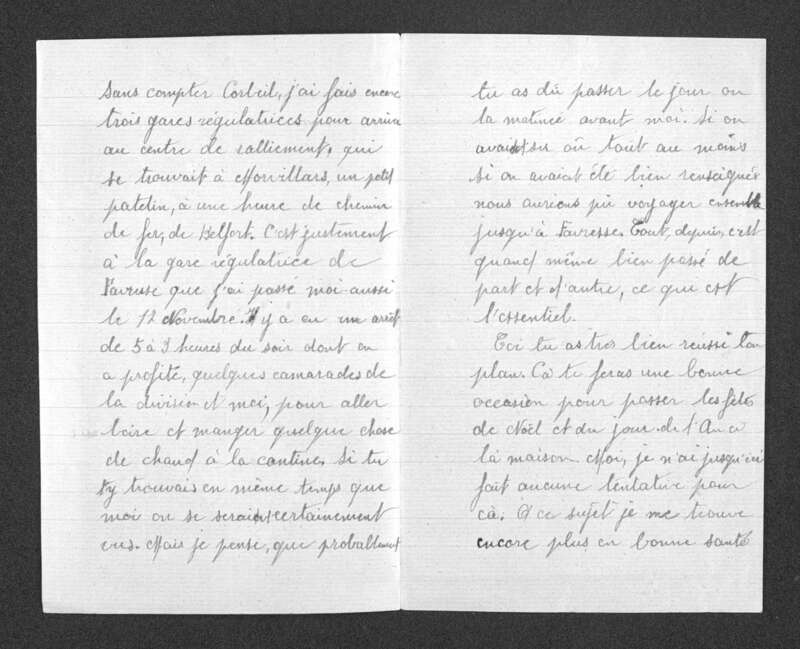 sans compter Corbeil, j'ai fais encore
trois gares régulatrices pour arriver
au centre de ralliement, qui
se trouvait à Morvillars, un petit
patelin, à une heure de chemin
de fer, de Belfort. C'est justement
à la gare régulatrice de
que j'ai passé moi-aussi
le 12 Novembre. Il y a eu un arrêt
de 5 à 9 heures du soir dont on
a profité, quelques camarades de
la division et moi, pour aller
boire et manger quelque chose
de chaud à la cantine. Si tu
t'y trouvais en même temps que
moi on se serait certainement
vus. Mais je pense, que probablement
tu as dû passer le jour ou
la matinée avant moi. Si on
avait su où tout au moins
si on avait été bien renseignés
nous aurions pû voyager ensemble
jusqu'à Favresse. Tout, depuis, c'est
quand même bien passé de
part et d'autre, ce que est
l'essentiel.
Toi tu as très bien réussi ton
plan. Cà te feras une bonne
occasion pour passer les fêtes
de Noël et du jour de l'An à
la maison. Moi, je n'ai jusqu'ici
fait aucune tentative pour
cà. A ce sujet je me trouve
encore plus en bonne santé